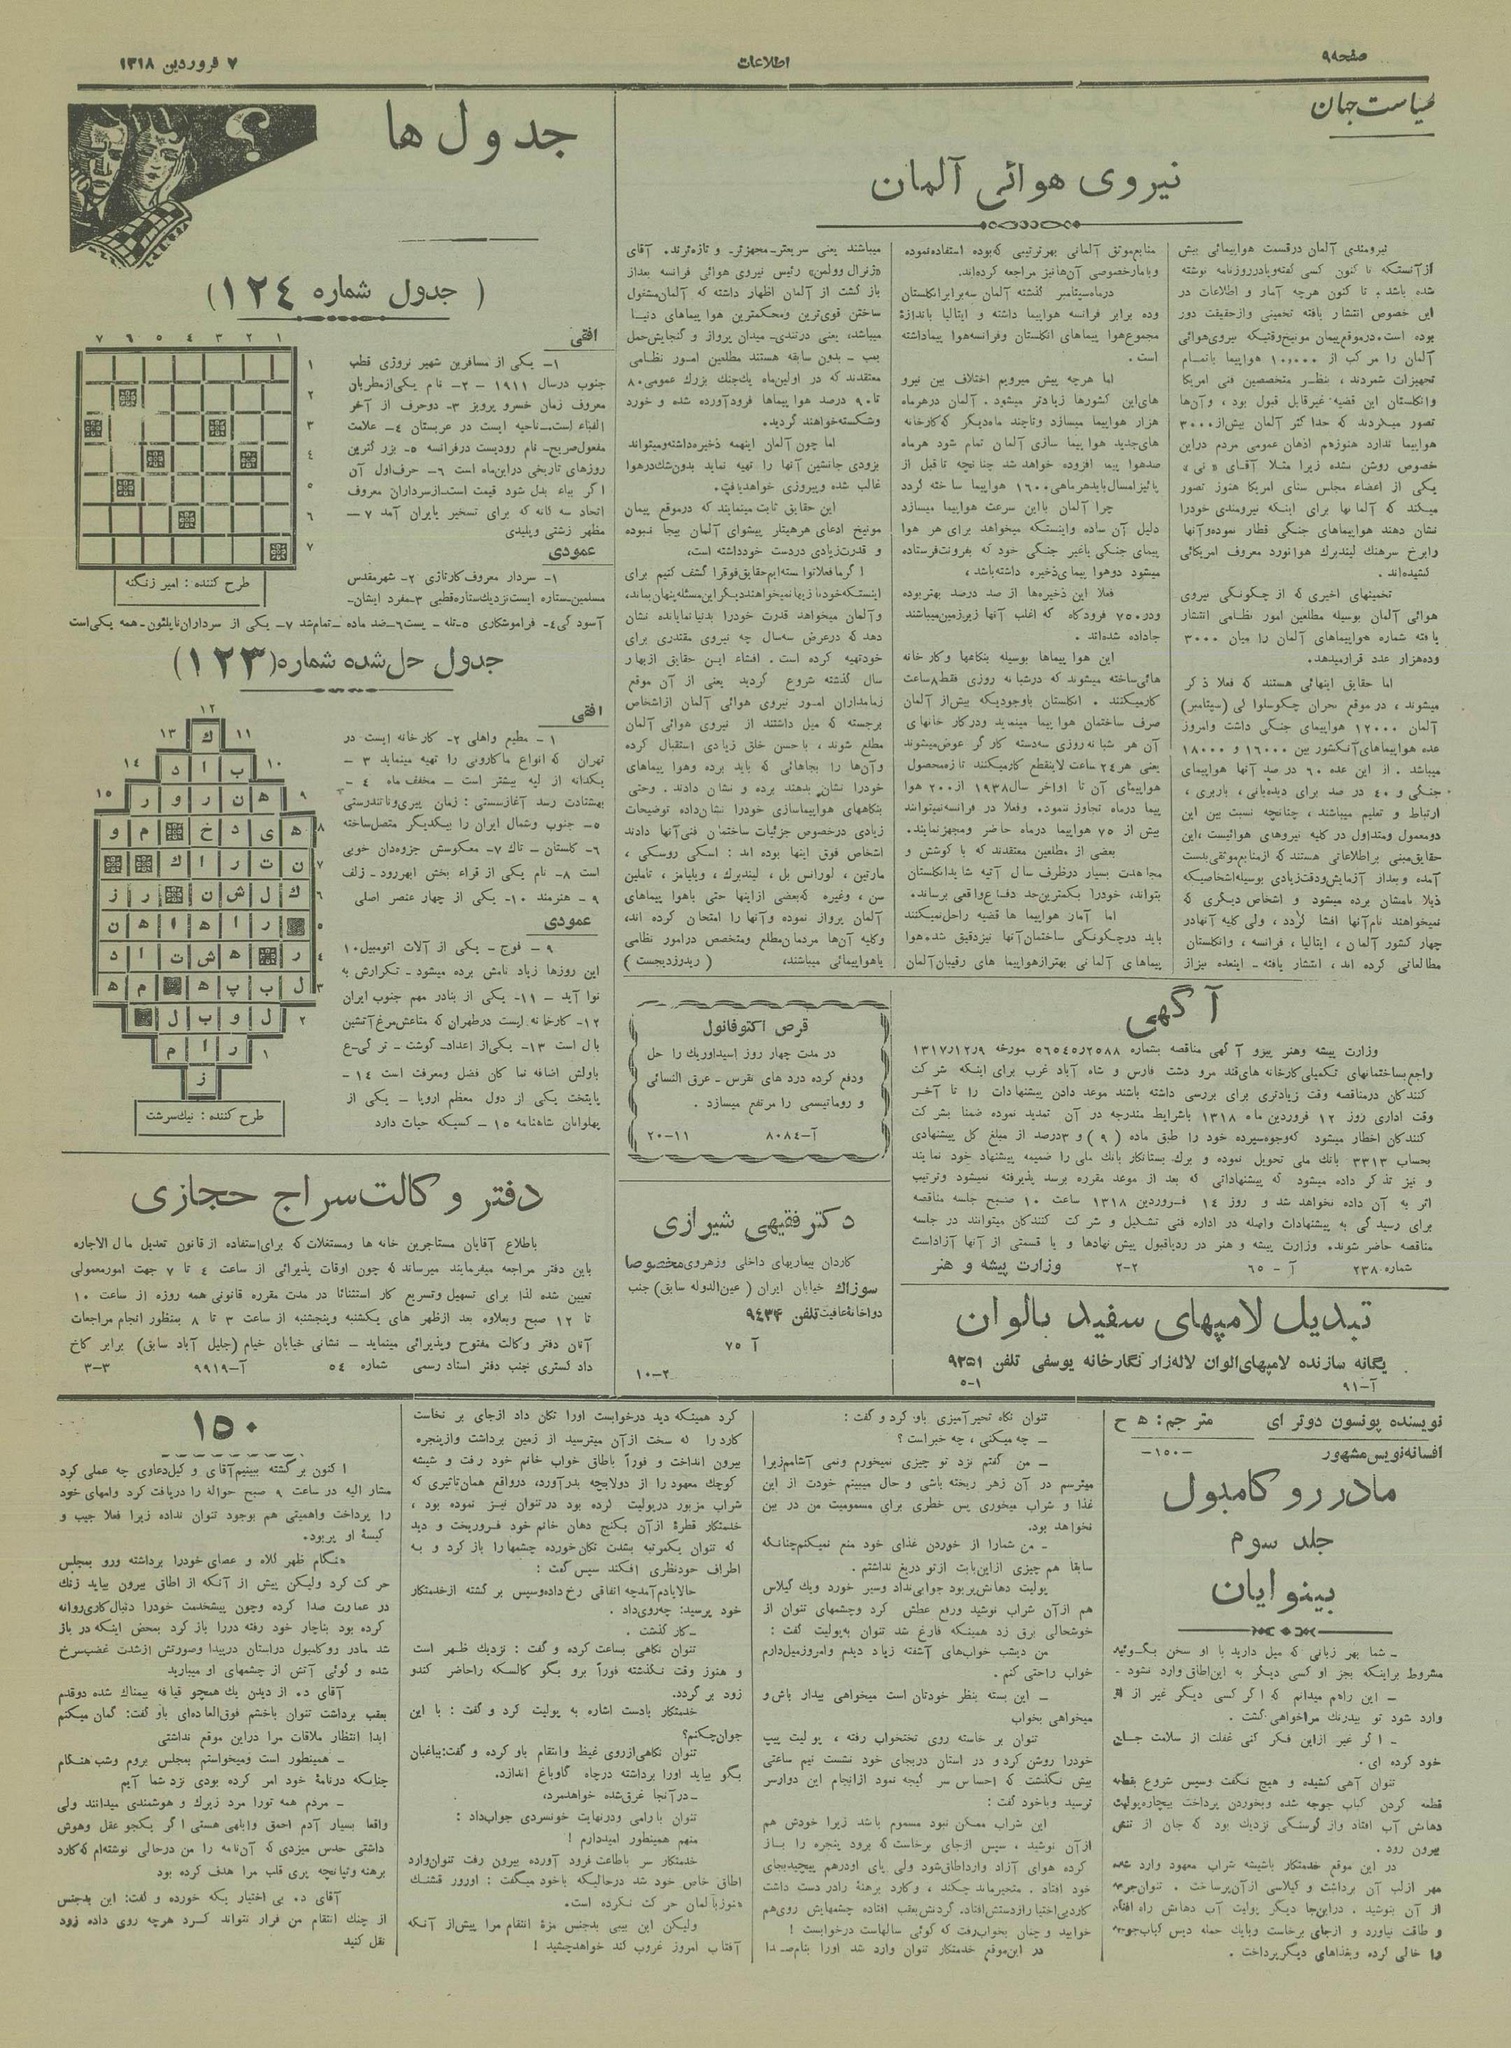 صفحه۹
اطلاعات
۷ فروردین ۱۳۱۸
سیاست جهان
نیروی هوائی آلمان
نیرومندی آلمان درقسمت هواپیمائی بیش
ازآنستکه تا کنون کسی گفته‌ویادرروزنامه نوشته
شده باشد. تا کنون هرچه آمار و اطلاعات در
این خصوص انتشار یافته تخمینی وازحقیقت دور
بوده است. درموقع پیمان مونیخ‌وقتیکه نیروی‌هوائی
آلمان را مرکب از ۱۰٫۰۰۰ هواپیما باتمام
تجهیزات شمردند، بنظر متخصصین فنی امریکا
وانگلستان این قضیه غیرقابل قبول بود، وآن‌ها
تصور میکردند که حداکثر آلمان بیش‌از۳۰۰۰
هواپیما ندارد هنوزهم اذهان عمومی مردم دراین
خصوص روشن نشده زیرا مثلا آقای «نی»
یکی از اعضاء مجلس سنای امریکا هنوز تصور
میکند که آلمانها برای اینکه نیرومندی خودرا
نشان دهند هواپیماهای جنگی قطار نموده‌وآنها
رابرخ سرهنگ لیندبرک هوانورد معروف امریکائی
کشیده‌اند.
تخمینهای اخیری که از چگونگی نیروی
هوائی آلمان بوسیله مطلعین امور نظامی انتشار
یافته شماره هواپیماهای آلمان را میان ۳۰۰۰
وده‌هزار عدد قرارمیدهد.
اما حقایق اینهائی هستند که فعلا ذکر
میشوند، درموقع بحران چکوسلواکی (سپتامبر)
آلمان ۱۲۰۰۰ هواپیمای جنگی داشت وامروز
عده هواپیماهای آنکشور بین ۱۶۰۰۰ و ۱۸۰۰۰
میباشد. از این عده ۶۰ در صد آنها هواپیمای
جنگی و ۴۰ در صد برای دیده‌بانی، باربری،
ارتباط و تعلیم میباشند، چنانچه نسبت بین این
دومعمول ومتداول در کلیه نیروهای هوائیست، این
حقایق مبنی براطلاعاتی هستند که ازمنابع‌موثقی‌بدست
آمده وبعداز آزمایش‌ودقت‌زیادی بوسیله اشخاصیکه
ذیلا نامشان برده میشود و اشخاص دیگری که
نمیخواهند نام‌آنها افشا گردد، ولی کلیه آنهادر
چهار کشور آلمان، ایتالیا، فرانسه، وانگلستان
مطالعاتی کرده‌اند، انتشار یافته ـ اینعده نیزاز
منابع‌موثق آلمانی بهرترتیبی که‌بوده استفاده‌نموده
وبامارخصوصی آن‌ها نیز مراجعه کرده‌اند.
درماه‌سپتامبر گذشته آلمان سه‌برابر‌انگلستان
وده برابر فرانسه هواپیما داشته و ایتالیا باندازهٔ
مجموع‌هوا پیماهای انگلستان وفرانسه‌هوا پیماداشته
است.
اما هرچه پیش میرویم اختلاف بین نیرو
های‌این کشورها زیادتر میشود. آلمان درهرماه
هزار هواپیما میسازد وتاچند ماه‌دیگر که‌کارخانه
های‌جدید هواپیما سازی آلمان تمام شود هرماه
صدهوا پیما افزوده خواهد شد چنانچه تا قبل از
پائیز امسال بایدهرماهی ۱۶۰۰ هواپیما ساخته گردد
چرا آلمان بااین سرعت هواپیما میسازد
دلیل آن ساده واینستکه میخواهد برای هر هوا
پیمای جنگی یاغیر جنگی خود که بفرونت‌فرستاده
میشود دوهوا پیمای ذخیره داشته‌باشد،
فعلا این ذخیره‌ها از صد درصد بهتر بوده
ودر۷۵۰ فرودگاه که اغلب آنها زیرزمین‌میباشند
جاداده شده‌اند.
این هواپیماها بوسیله بنگاهها وکارخانه
هائی‌ساخته میشوند که درشبانه روزی فقط۸ساعت
کارمیکنند. انگلستان باوجودیکه بیش‌از آلمان
صرف ساختمان هواپیما مینماید ودرکارخانهای
آن هر شبانه روزی سه‌دسته کارگر عوض‌میشوند
یعنی هر۲۴ ساعت لاینقطع کارمیکنند تازه‌محصول
هواپیمای آن تا اواخر سال۱۹۳۸ از۲۰۰ هوا
پیما درماه تجاوز ننمود. وفعلا در فرانسه‌نمیتوانند
بیش از ۷۵ هواپیما درماه حاضر ومجهزنمایند.
بعضی از مطلعین معتقدند که با کوشش و
مجاهدت بسیار درظرف سال آتیه شایدانگلستان
بتواند، خودرا بکمترین‌حد دفاع‌واقعی برساند.
اما آمار هواپیماها قضیه راحل‌نمیکنند
باید درچگونگی ساختمان‌آنها نیزدقیق شد. هوا
پیماهای آلمانی بهترازهواپیماهای رقیبان‌آلمان
میباشند یعنی سریعتر ـ مجهزتر ـ و تازه‌ترند. آقای
«ژنرال وولمن» رئیس نیروی هوائی فرانسه بعداز
بازگشت از آلمان اظهار داشته که آلمان‌مشغول
ساختن قوی‌ترین ومحکمترین هواپیماهای دنیا
میباشد، یعنی درتندی ـ میدان پرواز و گنجایش‌حمل
بمب ـ بدون سابقه هستند مطلعین امور نظامی
معتقدند که در اولین‌ماه یك‌جنك بزرگ عمومی۸۰
تا۹۰ درصد هواپیماها فرودآورده شده و خورد
وشکسته‌خواهند گردید.
اما چون آلمان اینهمه ذخیره‌داشته‌ومیتواند
بزودی جانشین آنها را تهیه نماید بدون‌شك‌درهوا
غالب شده وپیروزی خواهد‌یافت.
این حقایق ثابت مینمایند که درموقع پیمان
مونیخ ادعای هرهیتلر پیشوای آلمان بیجا نبوده
و قدرت‌زیادی دردست خودداشته است،
اگر ما‌فعلا‌توانسته ایم‌حقایق‌فوق‌را کشف کنیم برای
اینستکه خودنازیها نمیخواهند‌دیگر‌این مسئله‌پنهان‌بماند،
وآلمان میخواهد قدرت خودرا بدنیا نمایانده نشان
دهد که‌درعرض سه‌سال چه نیروی مقتدری برای
خودتهیه کرده است. افشاء این حقایق ازبهار
سال گذشته شروع گردید یعنی از آن موقع
زمامداران امور نیروی هوائی آلمان ازاشخاص
برجسته که میل داشتند از نیروی هوائی آلمان
مطلع شوند، باحسن خلق زیادی استقبال کرده
وآن‌ها را بجاهائی که باید برده وهوا پیماهای
خودرا نشان بدهند برده و نشان دادند. وحتی
بنگاههای هواپیماسازی خودرا نشان‌داده توضیحات
زیادی درخصوص جزئیات ساختمان فنی‌آنها دادند
اشخاص فوق اینها بوده‌اند: اسکی روسکی،
مارتین، لورانس بل، لیندبرك، ویلیامز، تاملین
سن، وغیره که‌بعضی ازاینها حتی باهوا پیماهای
آلمان پرواز نموده وآنها را امتحان کرده‌اند،
وکلیه آن‌ها مردمان‌مطلع ومتخصص درامور نظامی
یاهواپیمائی میباشند، (ریدرزدیجست)
جدول ها
(جدول شماره ۱۲۴)
۱ ۲ ۳ ۴ ۵ ۶ ۷
۱
۲
۳
۴
۵
۶
۷
طرح کننده: امیر زنگنه
افقی
۱ـ یکی از مسافرین شهیر نروژی قطب
جنوب درسال ۱۹۱۱ ـ ۲ـ نام یکی‌ازمطربان
معروف زمان خسرو پرویز ۳ـ دوحرف از آخر
الفباء است ـ ناحیه ایست در عربستان ۴ـ علامت
مفعول‌صریح ـ نام رودیست درفرانسه ۵ـ بزرگترین
روزهای تاریخی دراین‌ماه است ۶ـ حرف‌اول آن
اگر بباء بدل شود قیمت است ـ ازسرداران معروف
اتحاد سه گانه که برای تسخیر بایران آمد ۷ـ
مظهر زشتی وپلیدی
عمودی
۱ـ سردار معروف‌کارتاژی ۲ـ شهرمقدس
مسلمین ـ ستاره ایست نزدیك‌ستاره‌قطبی ۳ـ مفرد ایشان ـ
آسودگی ۴ـ فراموشکاری ۵ـ تله ـ پست ۶ـ ضد ماده ـ تمام‌شد ۷ـ یکی از سرداران ناپلئون ـ همه یکی‌است
جدول حل شده شماره(۱۲۳)
۱۲
۱۳ ك ۱۱
۱۴ ب ا د ۱۰
۱۵ ه ن ر و ر ۹
ه ی د خ م و ۸
ن ت ر ا ك ۷
ك ل ش ن ر ز ۶
ر ا ه ا ه ن ۵
ر ه ش ت ا د ۴
ل ب پ ه م ه ۳
ل و ب ل ۲
ر ا م ۱
ز
طرح کننده: نیك‌سرشت
افقی
۱ـ مطیع واهلی ۲ـ کارخانه ایست در
تهران که انواع ماکارونی را تهیه مینماید ۳ـ
یکدانه از لپه بیشتر است ـ مخفف ماه ۴ـ
بهشتادت رسد آغازسستی: زمان پیری‌وناتندرستی
۵ـ جنوب وشمال ایران را بیکدیگر متصل‌ساخته
۶ـ گلستان ـ تاك ۷ـ معکوسش جزوه‌دان خوبی
است ۸ـ نام یکی از قراء بخش ابهررود ـ زلف
۹ـ هنرمند ۱۰ـ یکی از چهار عنصر اصلی
عمودی
۹ـ فوج ـ یکی از آلات اتومبیل۱۰
این روزها زیاد نامش برده میشود ـ تکرارش به
نوا آید ـ ۱۱ـ یکی از بنادر مهم جنوب ایران
۱۲ـ کارخانه ایست درطهران که متاعش‌مرغ‌آتشین
بال است ۱۳ـ یکی‌از اعداد ـ گوشت ـ ترگی‌ع
باولش اضافه نما کان فضل ومعرفت است ۱۴ـ
پایتخت یکی از دول معظم اروپا ـ یکی از
پهلوانان شاهنامه ۱۵ـ کسیکه حیات دارد
آگهی
وزارت پیشه وهنر پیرو آگهی مناقصه بشماره ۵۶۵۴۵٫۲۵۸۸ مورخه ۱۳۱۷٫۱۲٫۹
راجع بساختمانهای تکمیلی‌کارخانه های‌قند مرو دشت فارس و شاه آباد غرب برای اینکه شرکت
کنندگان درمناقصه وقت زیادتری برای بررسی داشته باشند موعد دادن پیشنهادات را تا آخر
وقت اداری روز ۱۲ فروردین ماه ۱۳۱۸ باشرایط مندرجه در آن تمدید نموده ضمنا بشرکت
کنندگان اخطار میشود که‌وجوه‌سپرده خود را طبق ماده (۹) و ۳درصد از مبلغ کل پیشنهادی
بحساب ۳۳۱۳ بانك ملی تحویل نموده و برك بستانکار بانك ملی را ضمیمه پیشنهاد خود نمایند
و نیز تذکر داده میشود که پیشنهاداتی که بعد از موعد مقرره برسد پذیرفته نمیشود وترتیب
اثر به آن داده نخواهد شد و روز ۱۴ فروردین ۱۳۱۸ ساعت ۱۰ صبح جلسه مناقصه
برای رسیدگی به پیشنهادات واصله در اداره فنی تشکیل و شرکت کنندگان میتوانند در جلسه
مناقصه حاضر شوند. وزارت پیشه و هنر در ردیاقبول پیش نهادها و یا قسمتی از آنها آزاداست
شماره ۲۳۸ آ ـ ۶۵ ۲-۲ وزارت پیشه و هنر
تبدیل لامپهای سفید بالوان
یگانه سازنده لامپهای‌الوان لاله‌زار نگارخانه یوسفی تلفن ۹۲۵۱
آ-۹۱ ۵-۱
قرص اکتوفانول
در مدت چهار روز اسیداوریك را حل
ودفع کرده درد های نقرس ـ عرق النسائی
و روماتیسمی را مرتفع میسازد.
آ-۸۰۸۴ ۲۰-۱۱
دکتر فقیهی شیرازی
کاردان بیماریهای داخلی وزهروی‌مخصوصا
سوزاك خیابان ایران (عین‌الدوله سابق) جنب
دواخانهٔ‌عافیت‌تلفن ۹۴۳۴
آ ۷۵
۱۰-۲
دفتر وکالت‌سراج حجازی
باطلاع آقایان مستاجرین خانه ها ومستغلات که برای‌استفاده ازقانون تعدیل مال الاجاره
باین دفتر مراجعه میفرمایند میرساند که چون اوقات پذیرائی از ساعت ۴ تا ۷ جهت امورمعمولی
تعیین شده لذا برای تسهیل وتسریع کار استثنائا در مدت مقرره قانونی همه روزه از ساعت ۱۰
تا ۱۲ صبح وبعلاوه بعد ازظهر های یکشنبه وپنجشنبه از ساعت ۳ تا ۸ بمنظور انجام مراجعات
آنان دفتر وکالت مفتوح وپذیرائی مینماید ـ نشانی خیابان خیام (جلیل آباد سابق) برابر کاخ
دادگستری بجنب دفتر اسناد رسمی شماره ۵۴ آ-۹۹۱۹ ۳-۳
نویسنده پونسون دوترای مترجم: ه ح
افسانه‌نویس مشهور -۱۵۰-
مادر روکامبول
جلد سوم
بینوایان
ـ شما بهر زبانی که میل دارید با او سخن بگوئید
مشروط براینکه بجز او کسی دیگر به این‌اطاق وارد نشود ـ
ـ این راهم میدانم که اگر کسی دیگر غیر از او
وارد شود تو بیدرنك مراخواهی کشت.
ـ اگر غیر ازاین فکر کنی غفلت از سلامت جان
خود کرده ای.
تنوان آهی کشیده و هیچ نگفت وسپس شروع بقطعه
قطعه کردن کباب جوجه شده وبخوردن پرداخت بیچاره‌پولیت
دهانش آب افتاد واز گرسنگی نزدیك بود که جان از تنش
بیرون رود.
در این موقع خدمتکار باشیشه شراب معهود وارد شده
مهر ازلب آن برداشت و گیلاسی ازآن‌پرساخت. تنوان‌جرعه
از آن بنوشید. دراین‌جا دیگر پولیت آب دهانش راه افتاد
و طاقت نیاورد و ازجای برخاست وبایك حمله دیس کباب‌جوجه
را خالی کرده وبغذاهای دیگر‌پرداخت.
تنوان نگاه تحیرآمیزی باو کرد و گفت:
ـ چه میکنی، چه خبر است؟
ـ من گفتم نزد تو چیزی نمیخورم ونمی آشامم‌زیرا
میترسم در آن زهر ریخته باشی و حال میبینم خودت از این
غذا و شراب میخوری پس خطری برای مسمومیت من در بین
نخواهد بود.
ـ من شمارا از خوردن غذای خود منع نمیکنم‌چنانکه
سابقا هم چیزی ازاین‌بابت ازتو دریغ نداشتم.
پولیت دهانش‌پر بود جوابی‌نداد وسیر خورد ویك گیلاس
هم ازآن شراب نوشید ورفع عطش کرد وچشمهای تنوان از
خوشحالی برق زد همینکه فارغ شد تنوان به‌پولیت گفت:
من دیشب خواب‌های آشفته زیاد دیدم وامروز‌میل‌دارم
خواب راحتی کنم.
ـ این بسته بنظر خودتان است میخواهی بیدار باش و
میخواهی بخواب
تنوان برخاسته روی تختخواب رفته، پولیت پیپ
خودرا روشن کرد و در آستان دربجای خود نشست نیم ساعتی
بیش نگذشت که احساس سر گیجه نمود ازانجام این دوارسر
ترسید وباخود گفت:
این شراب ممکن نبود مسموم باشد زیرا خودش هم
ازآن نوشید، سپس ازجای برخاست که برود پنجره را باز
کرده هوای آزاد وارداطاق‌شود ولی پای اودرهم پیچید‌بجای
خود افتاد. متحیرماند چکند، وکارد برهنهٔ رادر دست داشت
کاردبی‌اختیار ازدستش‌افتاد. گردنش‌بعقب افتاده چشمهایش روی‌هم
خوابید و چنان بخواب‌رفت که گوئی سالهاست درخوابست!
در این‌موقع خدمتکار تنوان وارد شد اورا بنام صدا
کرد همینکه دید درخوابست اورا تکان داد ازجای بر نخاست
کارد را که سخت ازآن میترسید از زمین برداشت وازپنجره
بیرون انداخت و فوراً باطاق خواب خانم خود رفت و شیشه
کوچك معهود را از دولابچه بدرآورد، درواقع همان‌تاثیری که
شراب مزبور درپولیت کرده بود در‌تنوان نیز نموده بود،
خدمتکار قطرهٔ ازآن بکنج دهان خانم خود فروریخت و دید
که تنوان یکمرتبه بشدت تکان‌خورده چشمها را باز کرد و به
اطراف خودنظری افکند سپس گفت:
حالا‌یادم‌آمد‌چه اتفاقی رخ داده‌وسپس بر گشته ازخدمتکار
خود پرسید: چه‌روی‌داد.
ـ کار گذشت.
تنوان نگاهی بساعت کرده و گفت: نزدیك ظهر است
و هنوز وقت نگذشته فوراً برو بگو کالسکه راحاضر کنند
زود برگردد.
خدمتکار بادست اشاره به پولیت کرد و گفت: با این
جوان‌چکنم؟
تنوان نگاهی‌ازروی غیظ وانتقام باو کرده و گفت: بباغبان
بگو بیاید اورا برداشته درچاه گاوباغ اندازد.
ـ درآنجا غرق‌شده خواهدمرد،
تنوان با‌رامی ودرنهایت خونسردی جواب‌داد:
منهم همینطور امیددارم!
خدمتکار سر باطاعت فرود آورده بیرون رفت تنوان‌وارد
اطاق خاص خود شد درحالیکه باخود میگفت: اورور قشنك
هنوز‌بآلمان حرکت نکرده است.
ولیکن این بیبی بدجنس مزهٔ انتقام مرا پیش‌از آنکه
آفتاب امروز غروب کند خواهد‌چشید!
۱۵۰
اکنون برگشته ببینیم‌آقای و کیل‌دعاوی چه عملی کرد
مشار الیه در ساعت ۹ صبح حواله را دریافت کرد وامهای خود
را پرداخت واهمیتی هم بوجود تنوان نداده زیرا فعلا جیب و
کیسهٔ او پربود.
هنگام ظهر کلاه و عصای خودرا برداشته ورو بمجلس
حرکت کرد ولیکن پیش از آنکه از اطاق بیرون بیاید زنك
در عمارت صدا کرده وچون پیشخدمت خودرا دنبال‌کاری‌روانه
کرده بود بناچار خود رفته دررا باز کرد بمحض اینکه در باز
شد مادر روکامبول دراستان در‌پیدا وصورتش ازشدت غضب‌سرخ
شده و گوئی آتش از چشمهای او میبارید
آقای د. از دیدن یك همچو قیافه بیمناك شده دوقدم
بعقب برداشت تنوان باخشم فوق‌العاده‌ای باو گفت: گمان میکنم
ابدا انتظار ملاقات مرا دراین موقع نداشتی
ـ همینطور است ومیخواستم بمجلس بروم وشب هنگام
چنانکه درنامهٔ خود امر کرده بودی نزد شما آیم
ـ مردم همه تورا مرد زیرك و هوشمندی میدانند ولی
واقعا بسیار آدم احمق وابلهی هستی اگر یکجو عقل وهوش
داشتی حدس میزدی که آن‌نامه را من درحالی نوشته‌ام که‌کارد
برهنه وتپانچه پری قلب مرا هدف کرده بود
آقای د. بی اختیار یکه خورده و گفت: این بدجنس
از چنك انتقام من فرار نتواند کرد هرچه روی داده زود
نقل کنید